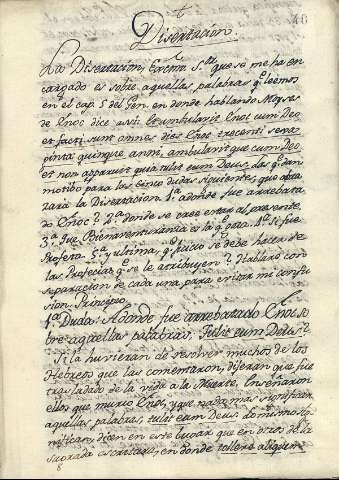 40
Disertacion.
La Disertacion, Excmo Sr. que se me ha en
cargado es sobre aquellas palabras q.e leemos
en el cap. 5 del Gen. en donde hablando Moyses
de Enoc dice assi. Et ambulavit Enoc cum Deo
et facti sunt omnes dies Enoc trecenti sexa
ginta quinque anni, ambulavit que cum Deo
et non apparuit quia tulit eum Deus, las q.e dan
motivo para las cinco dudas siguientes que
la Disertacion. 1.a adonde fue arrebata
do Enoc? 2.a donde se cree estar al presente.
3.a que Bienaventuranza es la q.e goza. 4.a si fue
Profeta. 5.a y ultima, q.e juicio se debe hacer de
las Profecias q.e se le atribuyen? Hablaré con
separacion de cada una para evitar mi confu
sion. Principio.
1.a Duda: Adonde fue arrebatado Enoc so
bre aquellas palabras, Tulit eum Deus?
Si la huvieran de resolver muchos de los
Hebreos que las comentaron, dijeran que fue
trasladado de la vida a la Muerte. Enseñaron
ellos que murio Enoc, y que nada mas significan
aquellas palabras, tulit eum Deus
dicen en este lugar que en otros de la
sagrada escritura, en donde tollere aliquem
8